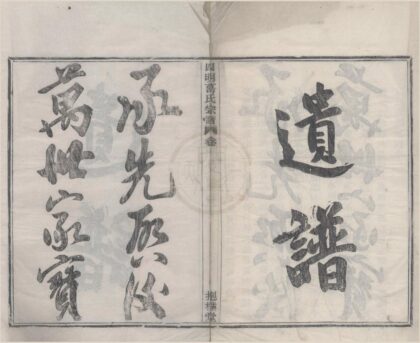 遺譜
四明氏宗譜 卷
堂
承先啟後
萬世家寶